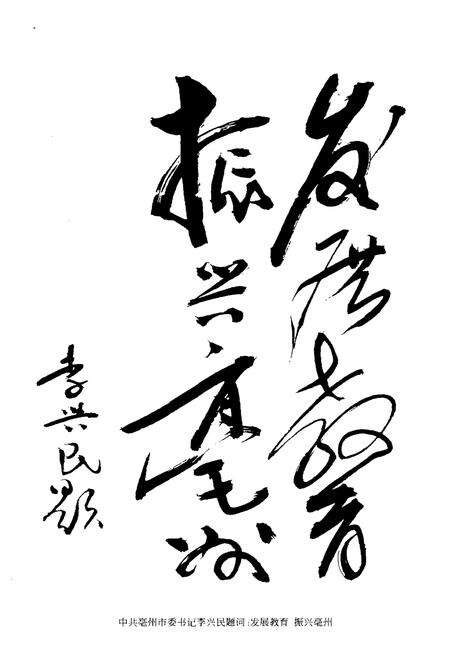 发展教育
振兴亳州
李兴民题
中共亳州市委书记李兴民题词:发展教育 振兴亳州